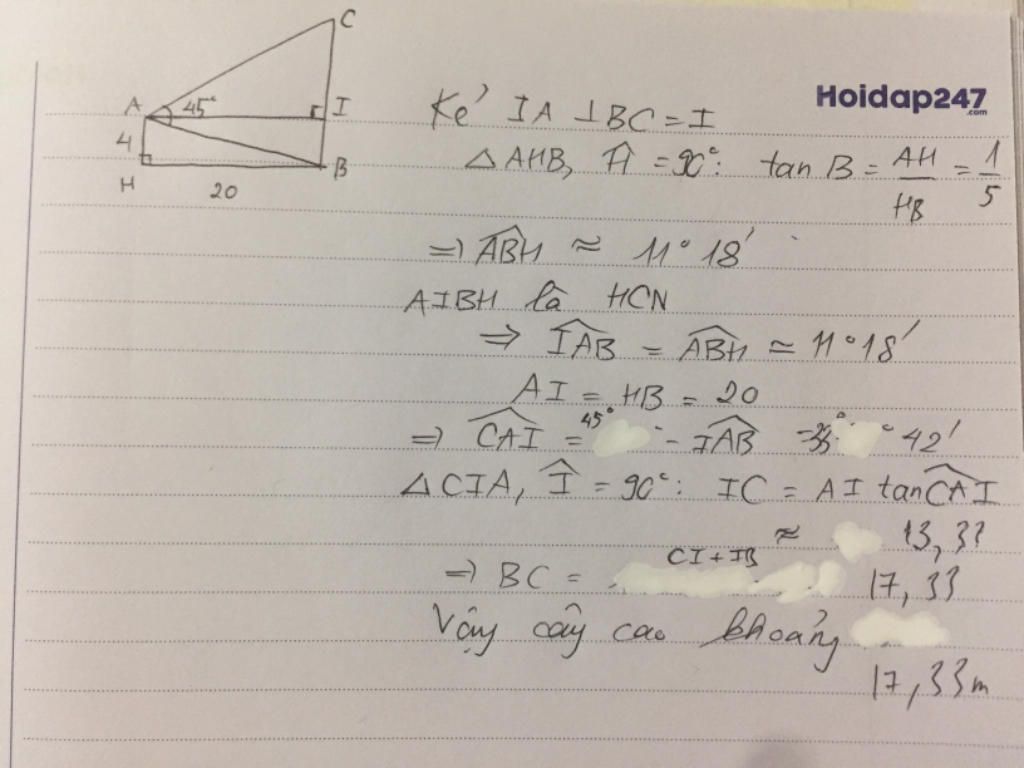 C
A 45° I
4
H 20 B
Hoidap247
.com
Kẻ IA ⊥ BC = I
△ AHB, Ĥ = 90°: tan B = AH/HB = 1/5
=> ABH ≈ 11° 18'
AIBH là HCN
=> IAB = ABH ≈ 11° 18'
AI = HB = 20
=> CAI = 45° - IAB = 33° 42'
△ CIA, Î = 90°: IC = AI tan CAI
≈ 13,33
=> BC = CI + IB 17,33
Vậy cây cao khoảng
17,33m